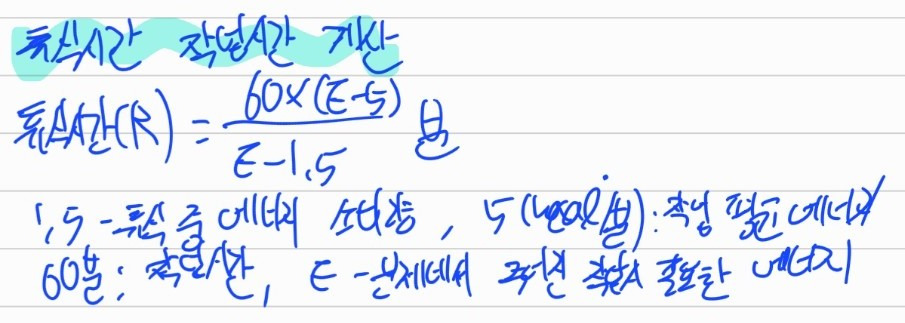 휴식시간 작업시간 계산
휴식시간(R) = 60×(E-5) / E-1.5 분
1.5 - 휴식 중 에너지 소비량, 5(kcal/분): 작업 평균 에너지
60분: 작업시간, E - 문제에서 주어진 작업시 필요한 에너지